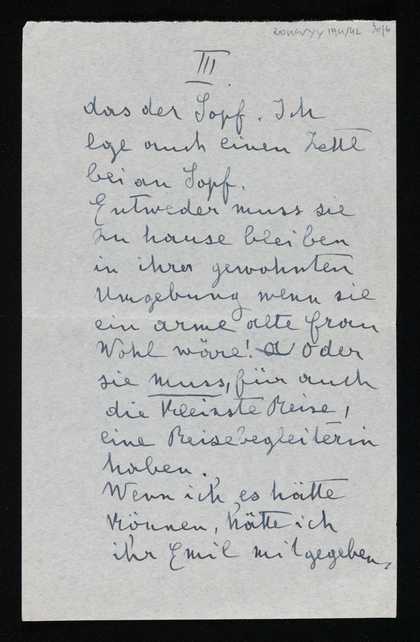 III
das der Sopf. Ich
lge auch einen Zettl
bei an Sopf.
Entweder muss sie
zu hause bleiben
in ihrer gewohnten
Umgebung wenn sie
ein arme alte frau
Wohl wäre! Oder
sie muss, für auch
die kleinste Reise,
eine Reisebegleiterin
haben.
Wenn ich es hätte
können, hätte ich
ihr Emil mitgegeben,